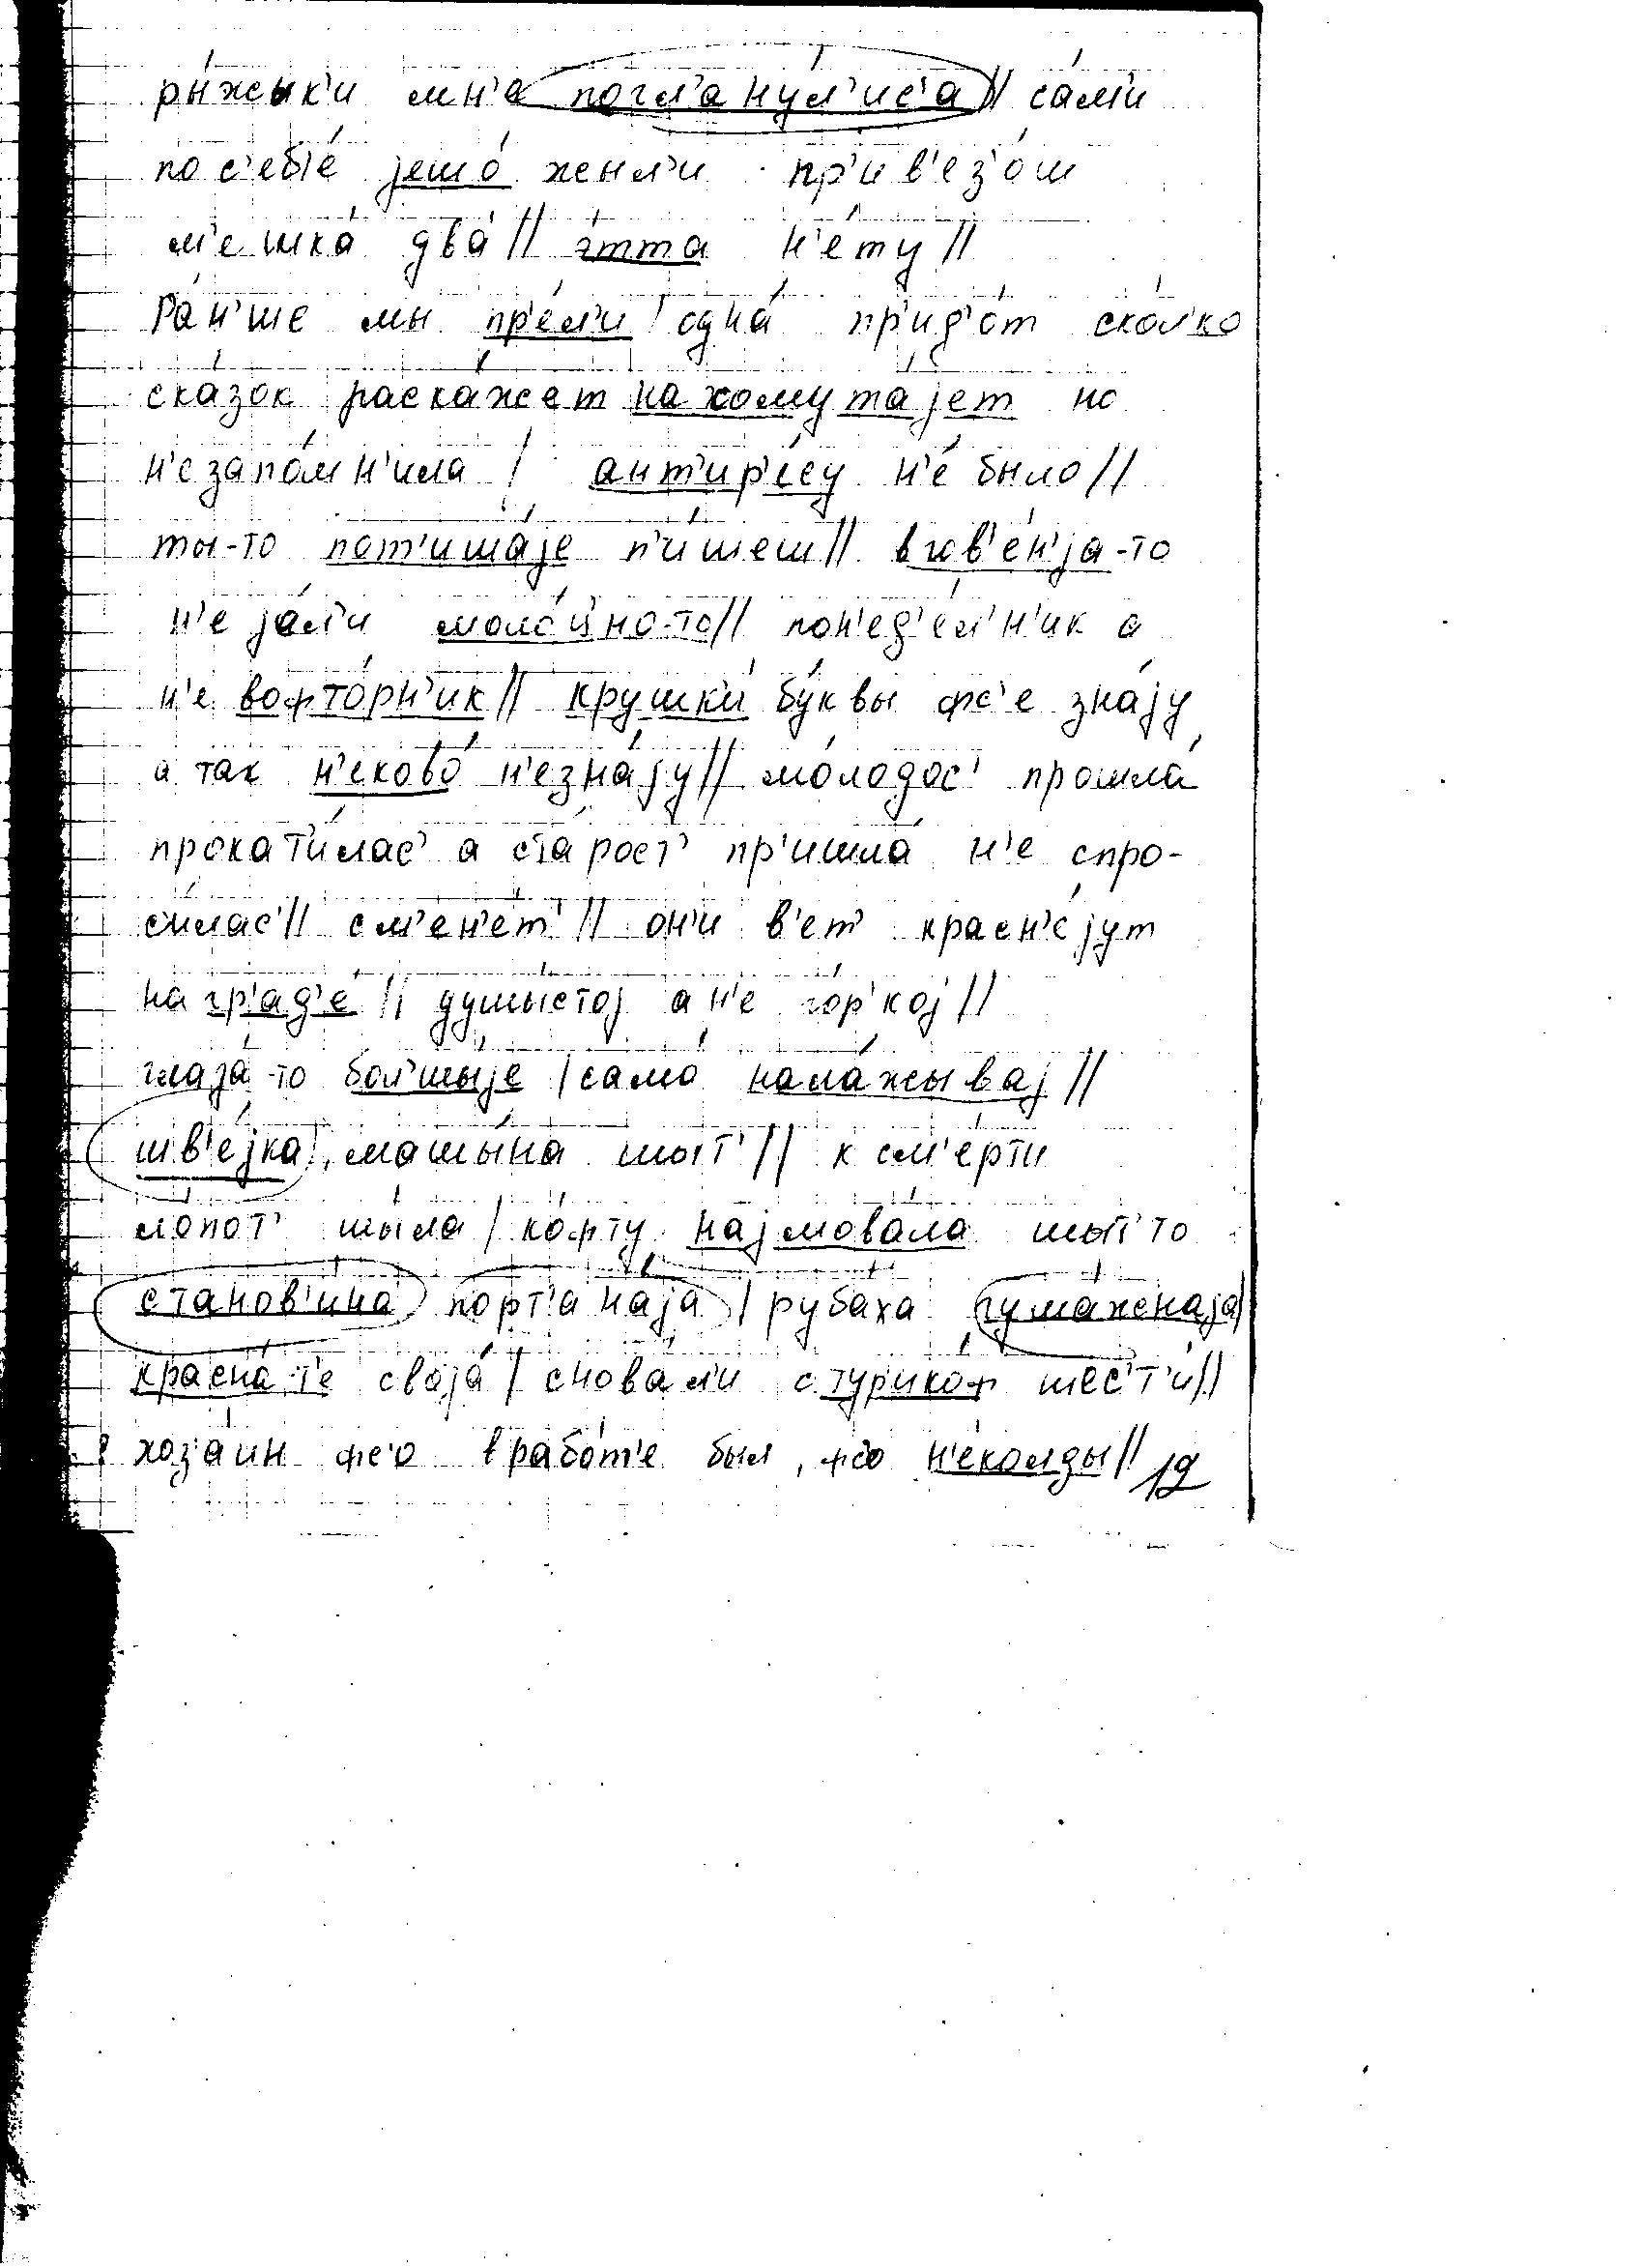 ры́жык'и мн'е погл'ану́л'ис'а // са́м'и
по с'еб'е́ јешо́ женл'и пр'ив'ез'о́ш
м'ешка́ два́ // э́тта н'е́ту //
Ра́н'ше мы пр'е́л'и / одна́ пр'ид'о́т ско́л'ко
ска́зок раска́жет нахомута́јет но
н'е запо́мн'ила / ант'ир'е́су н'е́ было //
ты-то пот'иша́је п'и́шеш // вгов'е́н'ја-то
н'е ја́л'и моло́цно-то // пон'ед'е́л'н'ик а
н'е вофто́рн'ик // крушк'и́ бу́квы фс'е зна́ју
а так н'еково́ н'е зна́ју // мо́лодос' прошла́
прокат'и́лас' а ста́рост' пр'ишла́ н'е спро-
с'илас' // см'ен'е́т' // он'и в'ет' красн'е́јут
на гр'ад'е́ // душы́стој а н'е го́р'кој //
глаза́-то бол'шы́је / само́ нала́жывај //
шв'е́јка, машы́на шыт' // к см'е́рти
ло́пот' шы́ла / ко́фту најмова́ла шыт' то
станов'и́на порт'ана́ја / руба́ха гума́женаја /
красна́-т'е својá / снова́л'и с ту́рикоф шес'т'и́ //
хоз'а́ин фс'о в рабо́т'е был, фс'о н'е́колды // 19